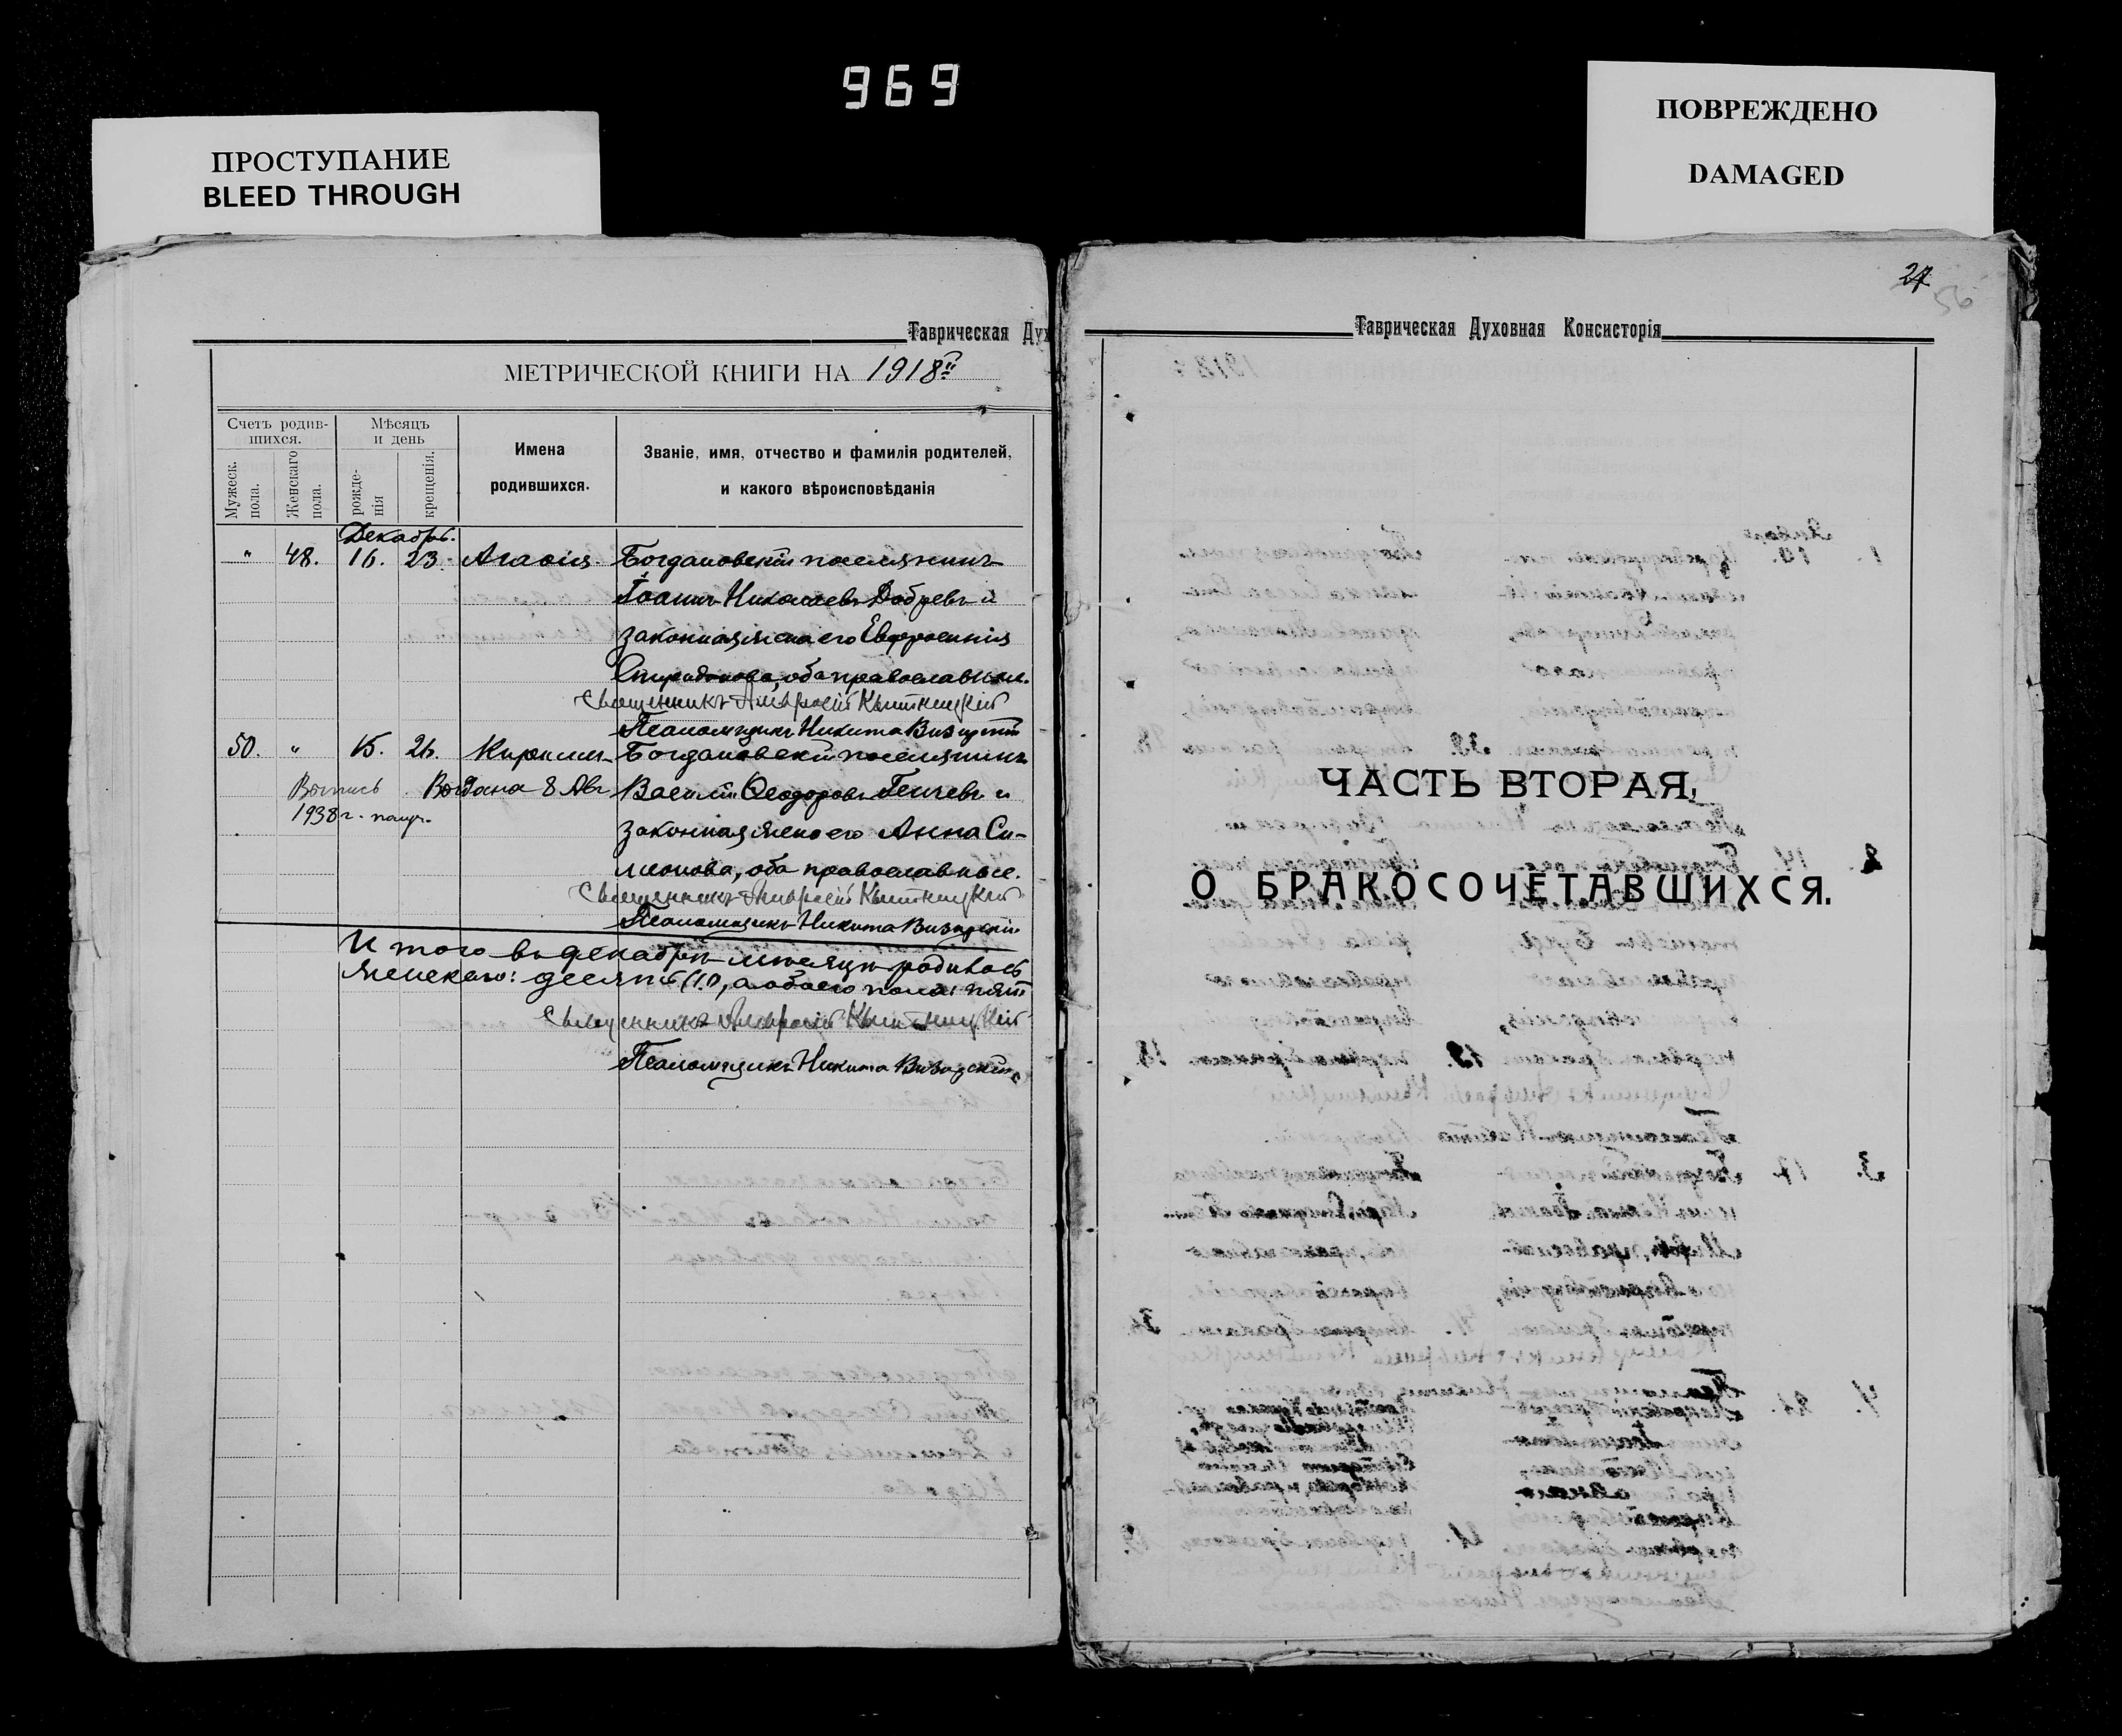 969
ПРОСТУПАНИЕ
BLEED THROUGH
ПОВРЕЖДЕНО
DAMAGED
Таврическая Дух
МЕТРИЧЕСКОЙ КНИГИ НА 1918
Счетъ родив-
шихся.
Мужеск.
пола.
Женскаго
пола.
Мѣсяцъ
и день
рожде-
нія
крещенія.
Имена
родившихся.
Званіе, имя, отчество и фамилія родителей,
и какого вѣроисповѣданія
Декабрь.
" 48. 16. 23. Агаѳія. Богдановскій поселянинъ
Іоаннъ Николаевъ Добревъ и
законная жена его Евфросинія
Спиридонова, оба православные.
Священникъ Амвросій
Псаломщикъ Никита
50. " 15. 26. Кириллъ Богдановскій поселянинъ
Василій Ѳеодоровъ Генчевъ и
8 Авг
1938 г.
законная жена его Анна Си-
меонова, оба православные.
Священникъ Амвросій
Псаломщикъ Никита
Итого въ декабрѣ мѣсяцѣ родилось
женскаго: десять (10), а обоего пола:
Священникъ Амвросій
Псаломщикъ Никита
27
56
Таврическая Духовная Консисторія
ЧАСТЬ ВТОРАЯ,
О БРАКОСОЧЕТАВШИХСЯ.